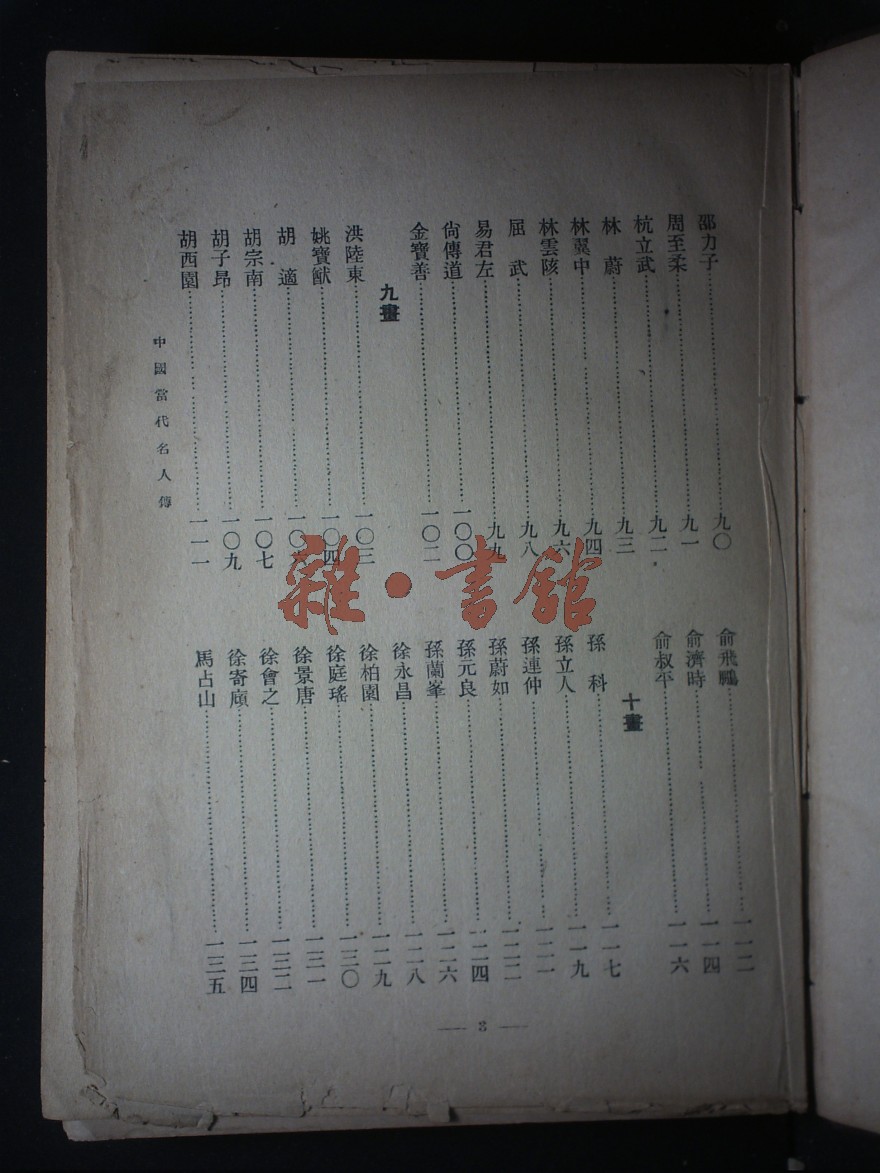 邵力子 九〇
周至柔 九一
杭立武 九二
林蔚 九三
林翼中 九四
林雲陔 九六
屈武 九八
易君左 九九
尙傳道 一〇〇
金寶善 一〇二
九畫
洪陸東 一〇三
姚寶猷 一〇四
胡適 一〇六
胡宗南 一〇七
胡子昂 一〇九
胡西園 一一一
俞飛鵬 一一二
俞濟時 一一四
俞叔平 一一六
十畫
孫科 一一七
孫立人 一一九
孫連仲 一二一
孫蔚如 一二二
孫元良 一二四
孫蘭峯 一二六
徐永昌 一二八
徐柏園 一二九
徐庭瑤 一三〇
徐景唐 一三一
徐會之 一三二
徐寄廎 一三四
馬占山 一三五
中國當代名人傳
— 3 —
雜·書館